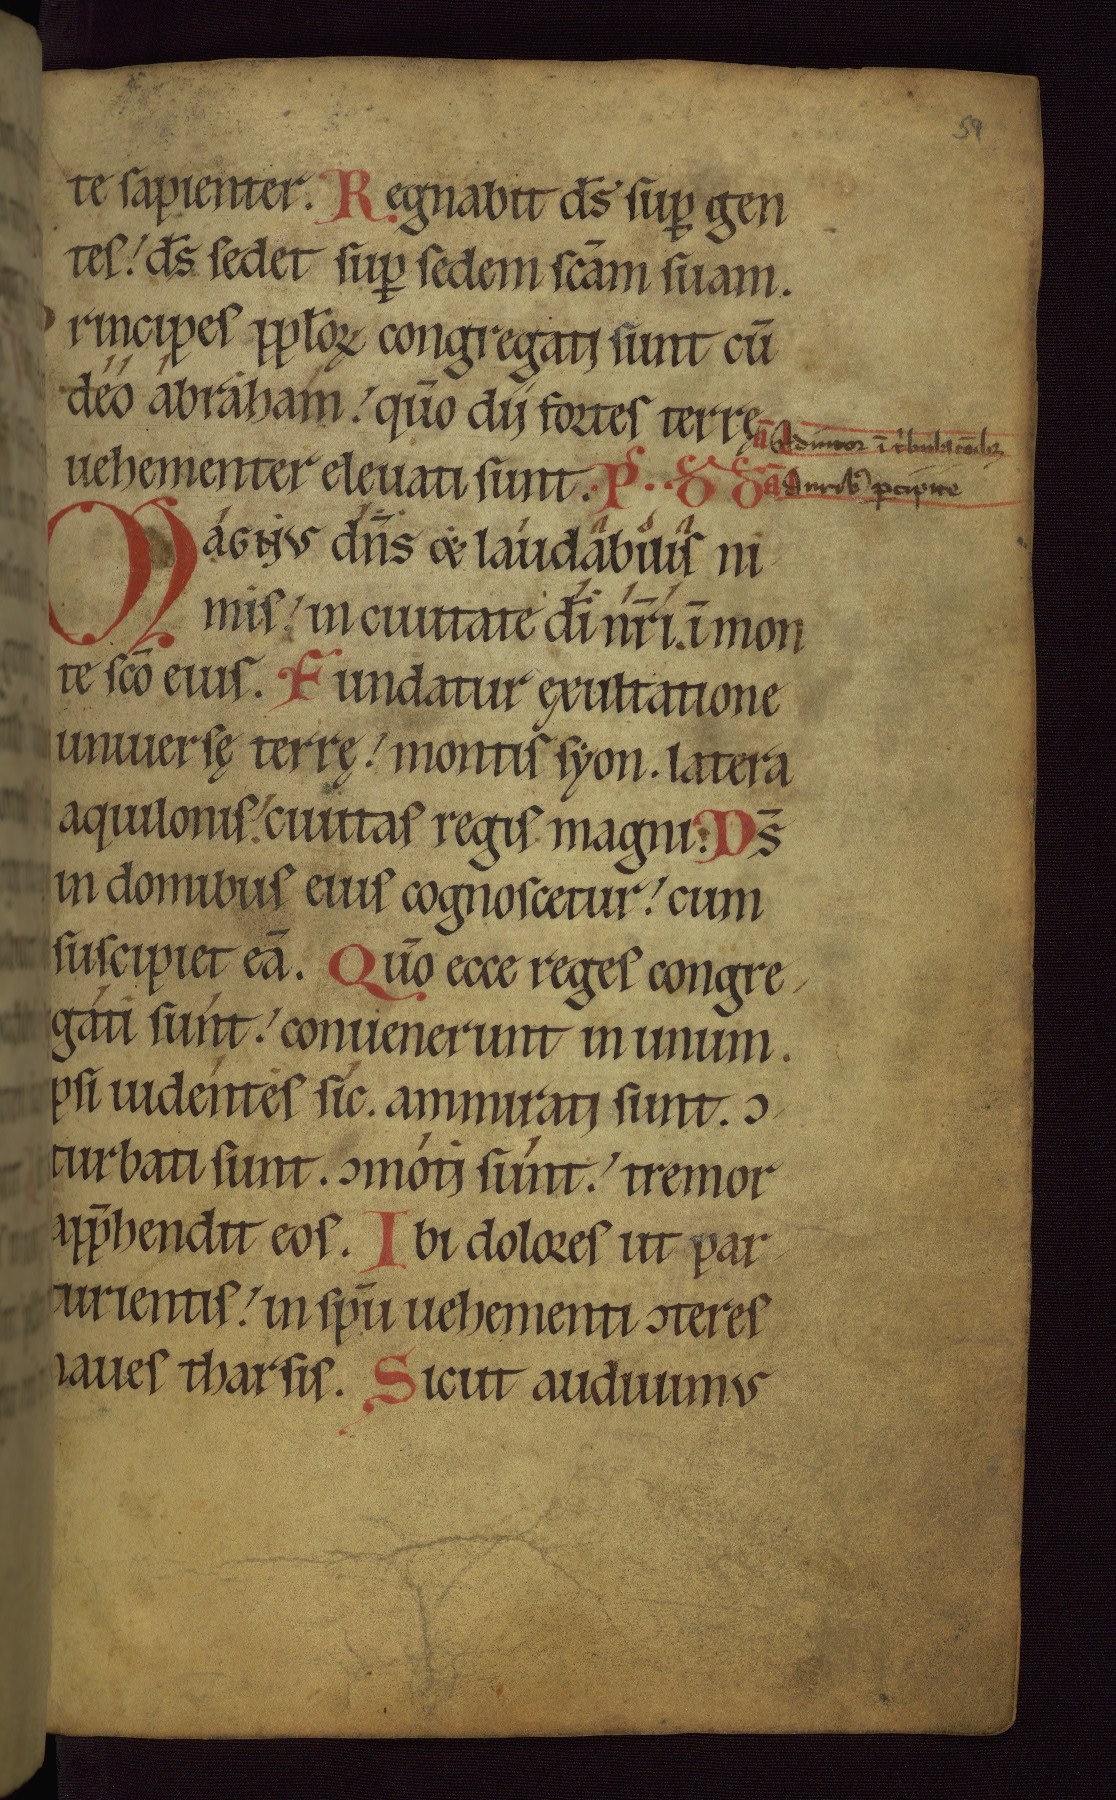 59
te sapienter. Regnabit ds̄ sup̱ gen
tes! ds̄ sedet sup̱ sedem scām suam.
Principes pplōꝝ congregatij sunt cū
deo abraham! qūo dij fortes terrę
uehementer eleuati sunt. Ps.
ā Adiutor ī tribulationibꝫ
ā Auribꝫ p̱cipite
Magnus dn̄s & laudabilis ni
mis! in ciuitate dī nr̄i. ī mon
te scō eius. Fundatur exultatione
uniuersę terrę! montis syon. latera
aquilonis! ciuitas regis magni. Ds̄
in domibus eius cognoscetur! cum
suscipiet eā. Qūo ecce reges congre
gati sunt! conuenerunt in unum.
psi uidentes sic. ammiratij sunt. ↄ
turbati sunt. ↄmotij sunt! tremor
app̄hendit eos. Ibi dolores ut par
turientis! in spū uehementi ↄteres
naues tharsis. Sicut audiuimus